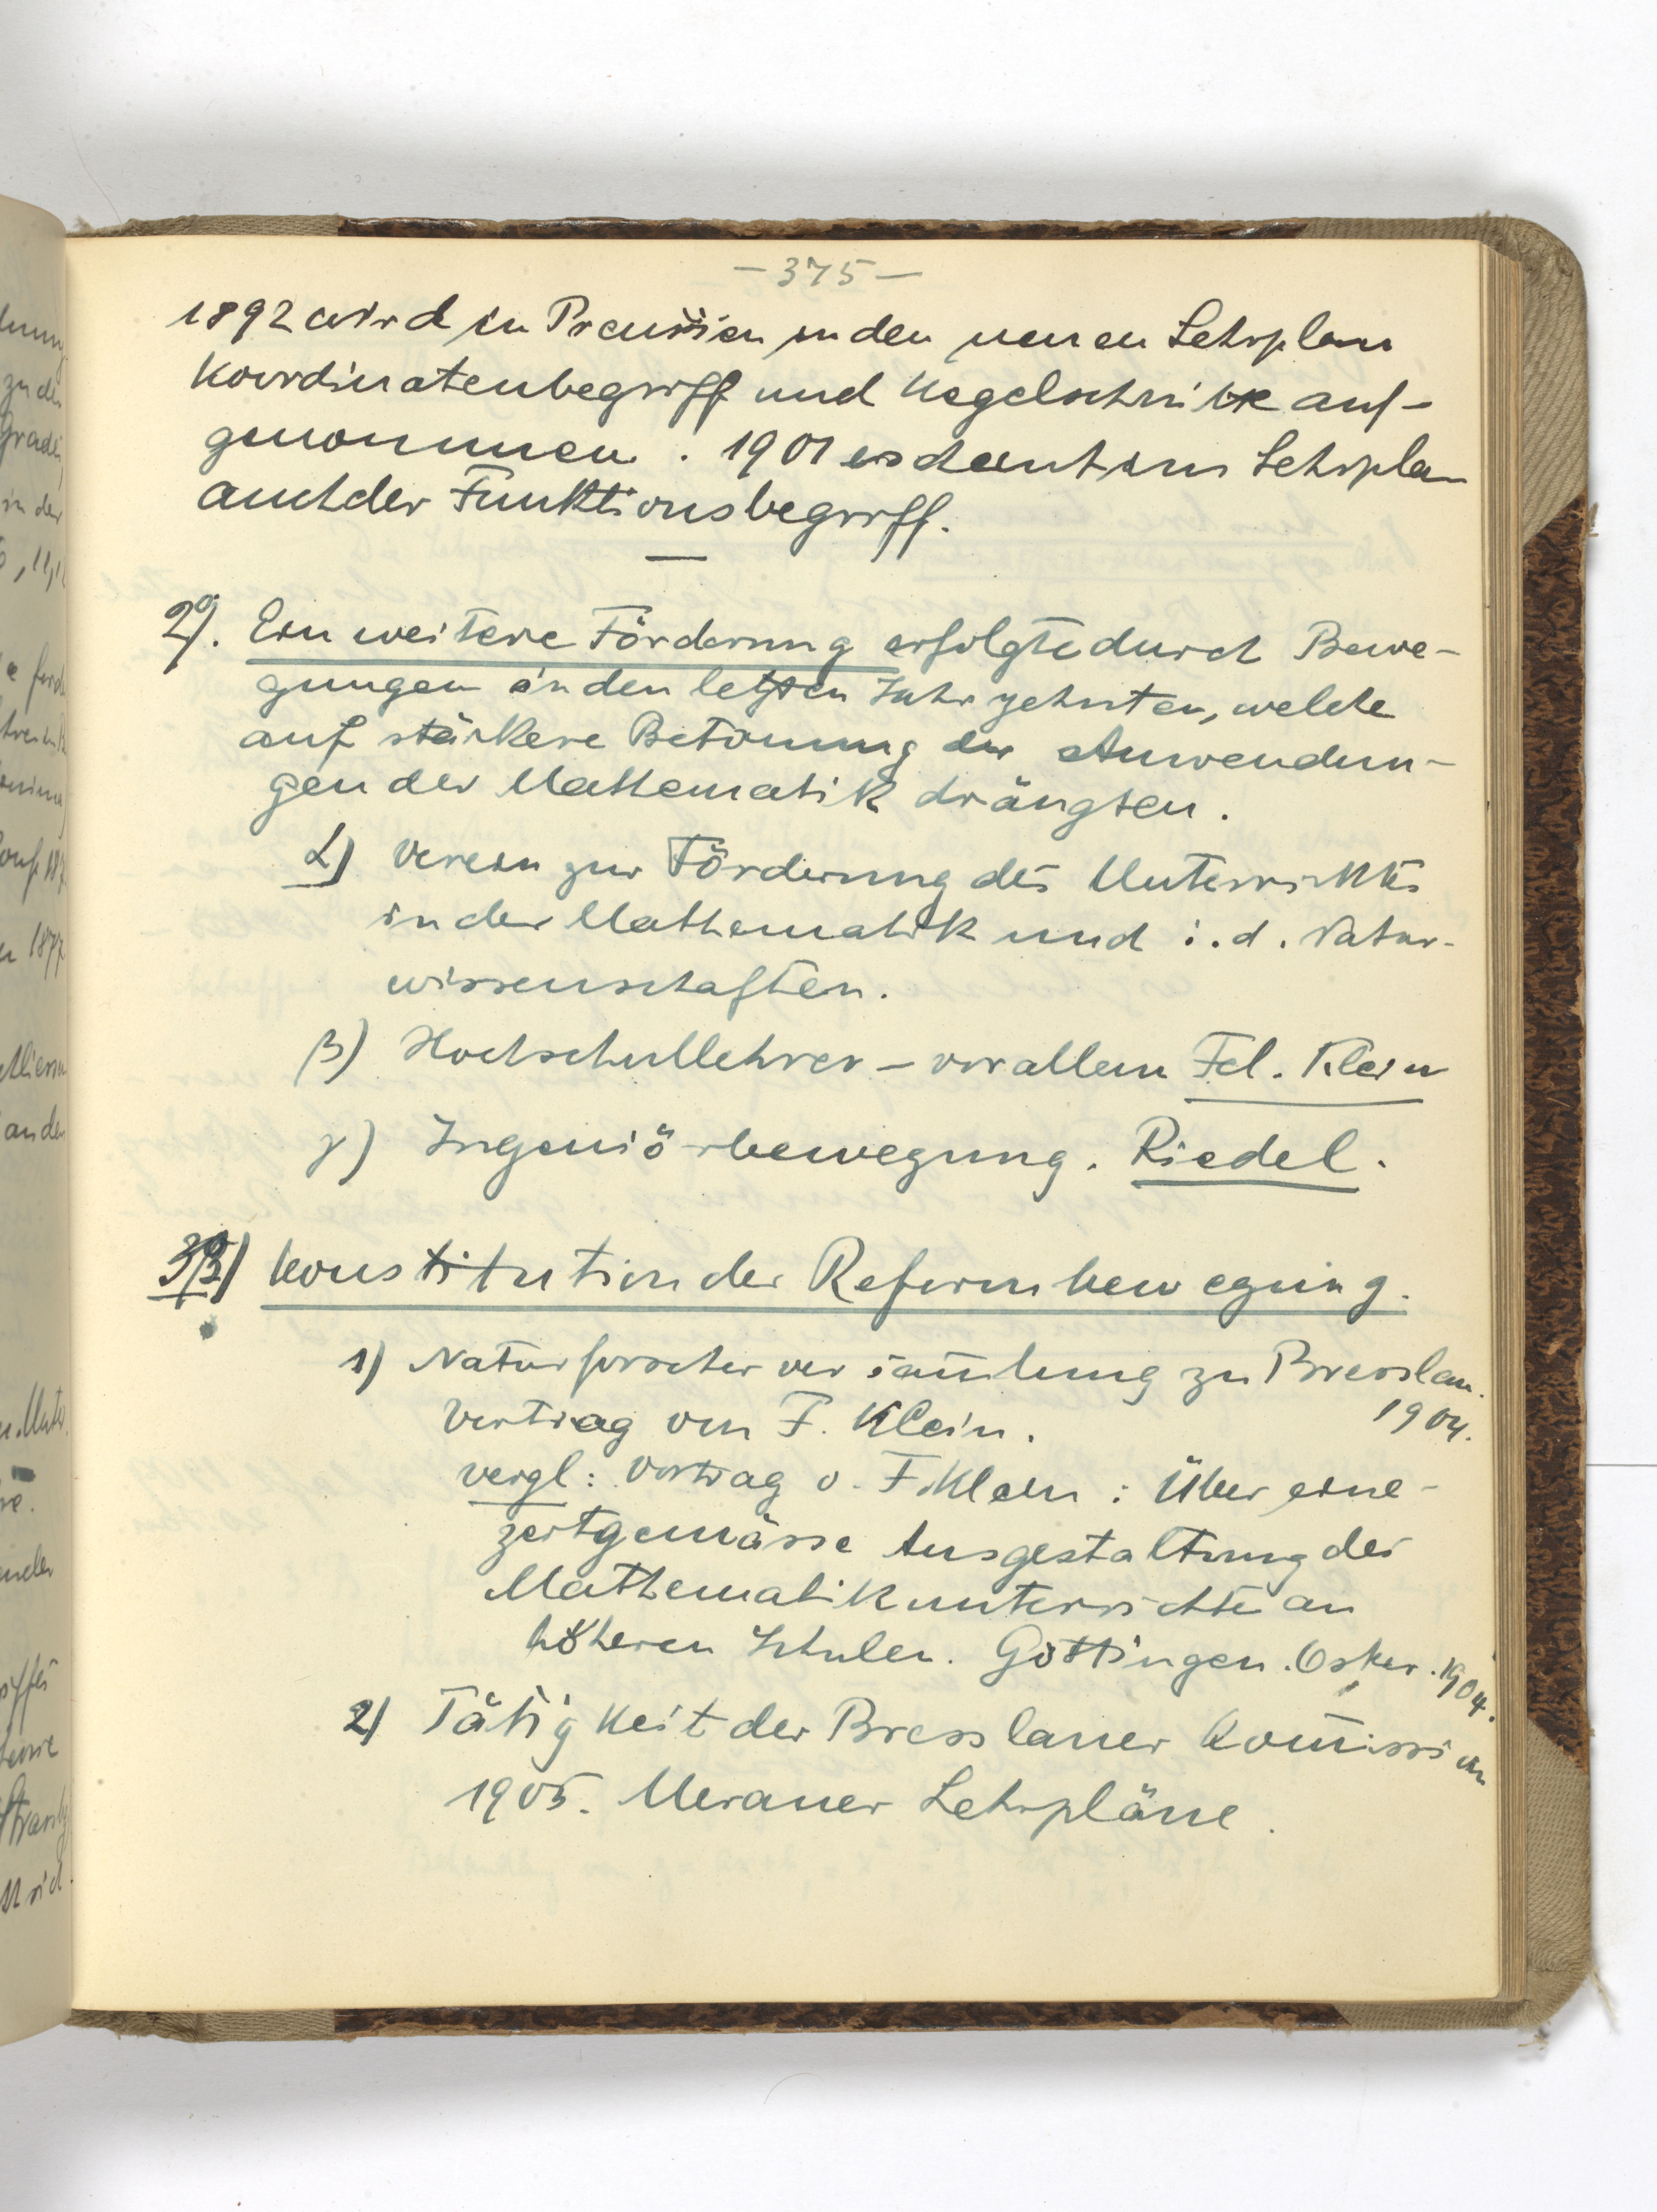 —375—
1892 wird in Preussen in den neuen Lehrplan
Koordinatenbegriff und Kegelschnitte auf-
genommen. 1901 erscheint im Lehrplan
auch der Funktionsbegriff.
2). Ein weitere Förderung erfolgte durch Bewe-
gungen in den letzten Jahrzehnten, welche
auf stärkere Betonung der Anwendun-
gen der Mathematik drängten.
α) Verein zur Förderung des Unterrichtes
in der Mathematik und i. d. Natur-
wissenschaften.
β) Hochschullehrer – vor allem Fel. Klein
γ) Ingeniörbewegung. Riedel.
3) Konstitution der Reformbewegung.
1) Naturforscherversam̄lung zu Bresslau.
1904.
Vortrag von F. Klein.
vergl: Vortrag v. F. Klein: Über eine
zeitgemässe Ausgestaltung des
Mathematikunterrichtes an
höheren Schulen. Göttingen. Oster. 1904.
2) Tätigkeit der Bresslauer Kom̄ission
1905. Meraner Lehrpläne.